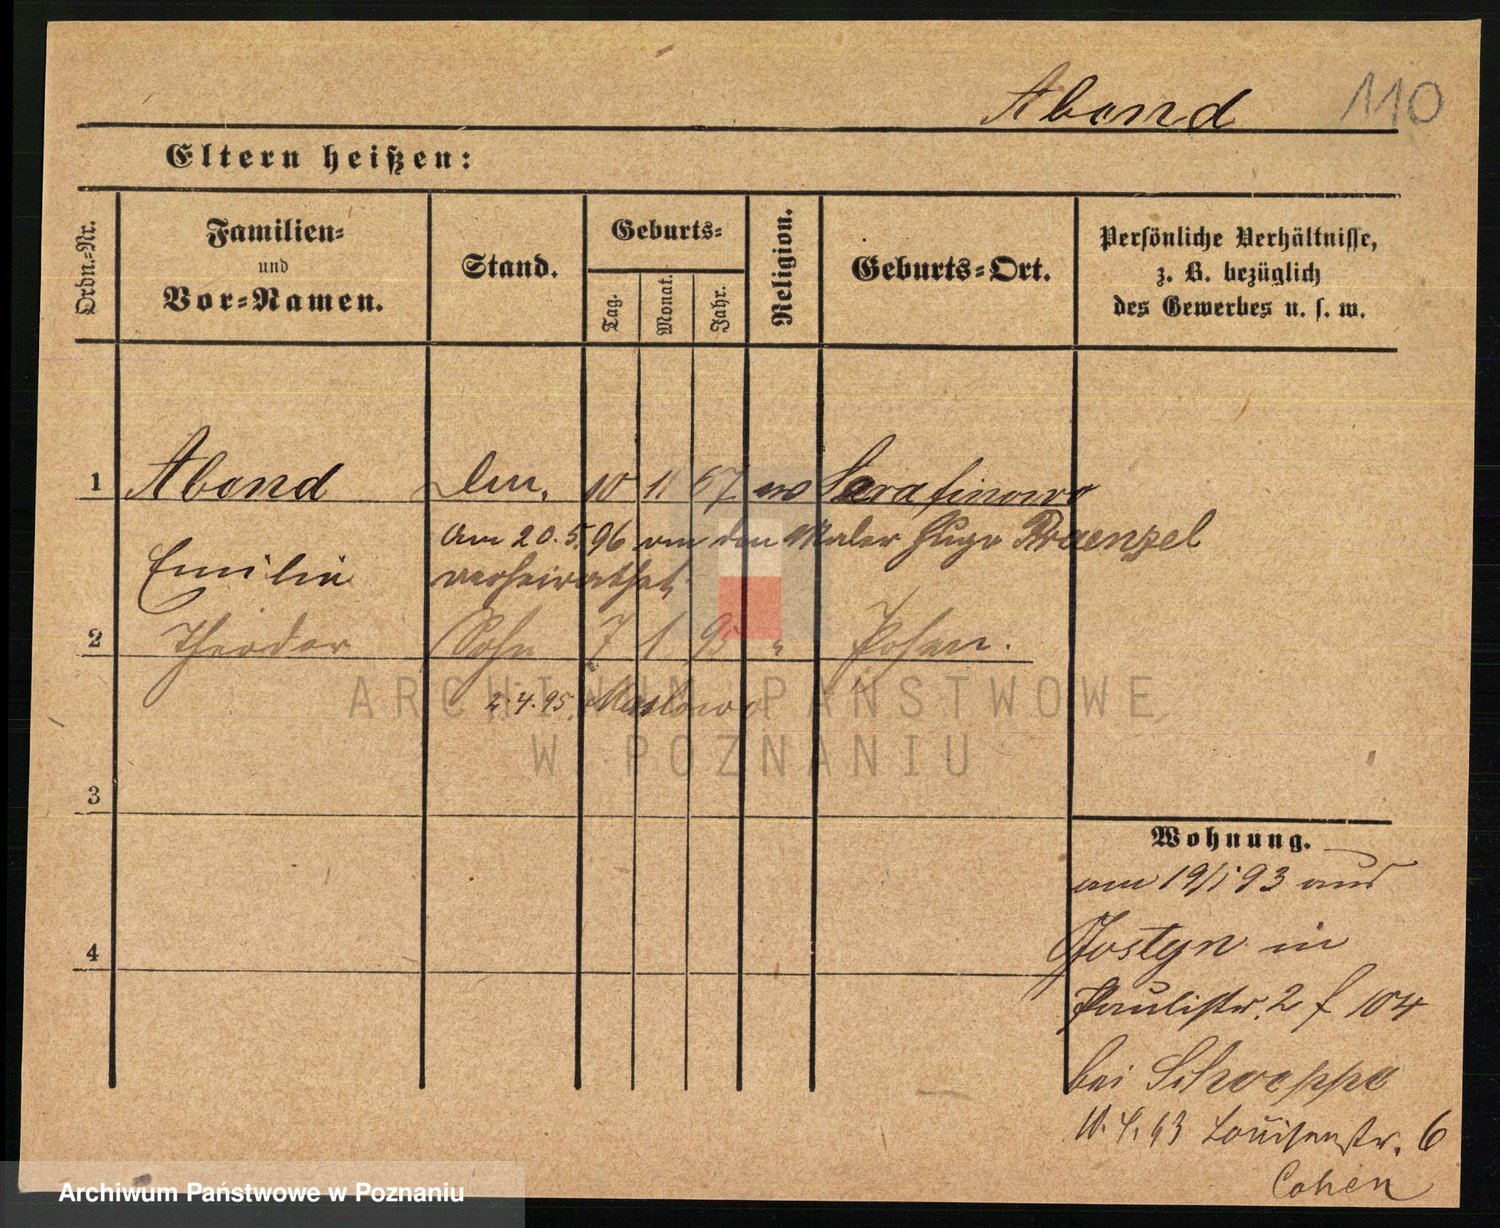 Abend 110
Eltern heißen:
Ordn.-Nr.
Familien-
und
Vor-Namen.
Stand.
Geburts-
Tag.
Monat.
Jahr.
Religion.
Geburts-Ort.
Persönliche Verhältnisse,
z. B. bezüglich
des Gewerbes u. s. w.
1 Abend 10 11 67 ev Serafinowo
am 20.5.96 an den Maler Hugo Praenzel
Emilie verheirathet
2 Theodor Sohn 7 1 95 " Posen.
2.4.95. Maslowo
ARCHIWUM PAŃSTWOWE
W POZNANIU
3
Wohnung.
am 19/1 93 aus
4
Gostyn in
Paulistr. 2 f 104
bei Schoeppe
10.4.93 Louisenstr. 6
Cohen
Archiwum Państwowe w Poznaniu